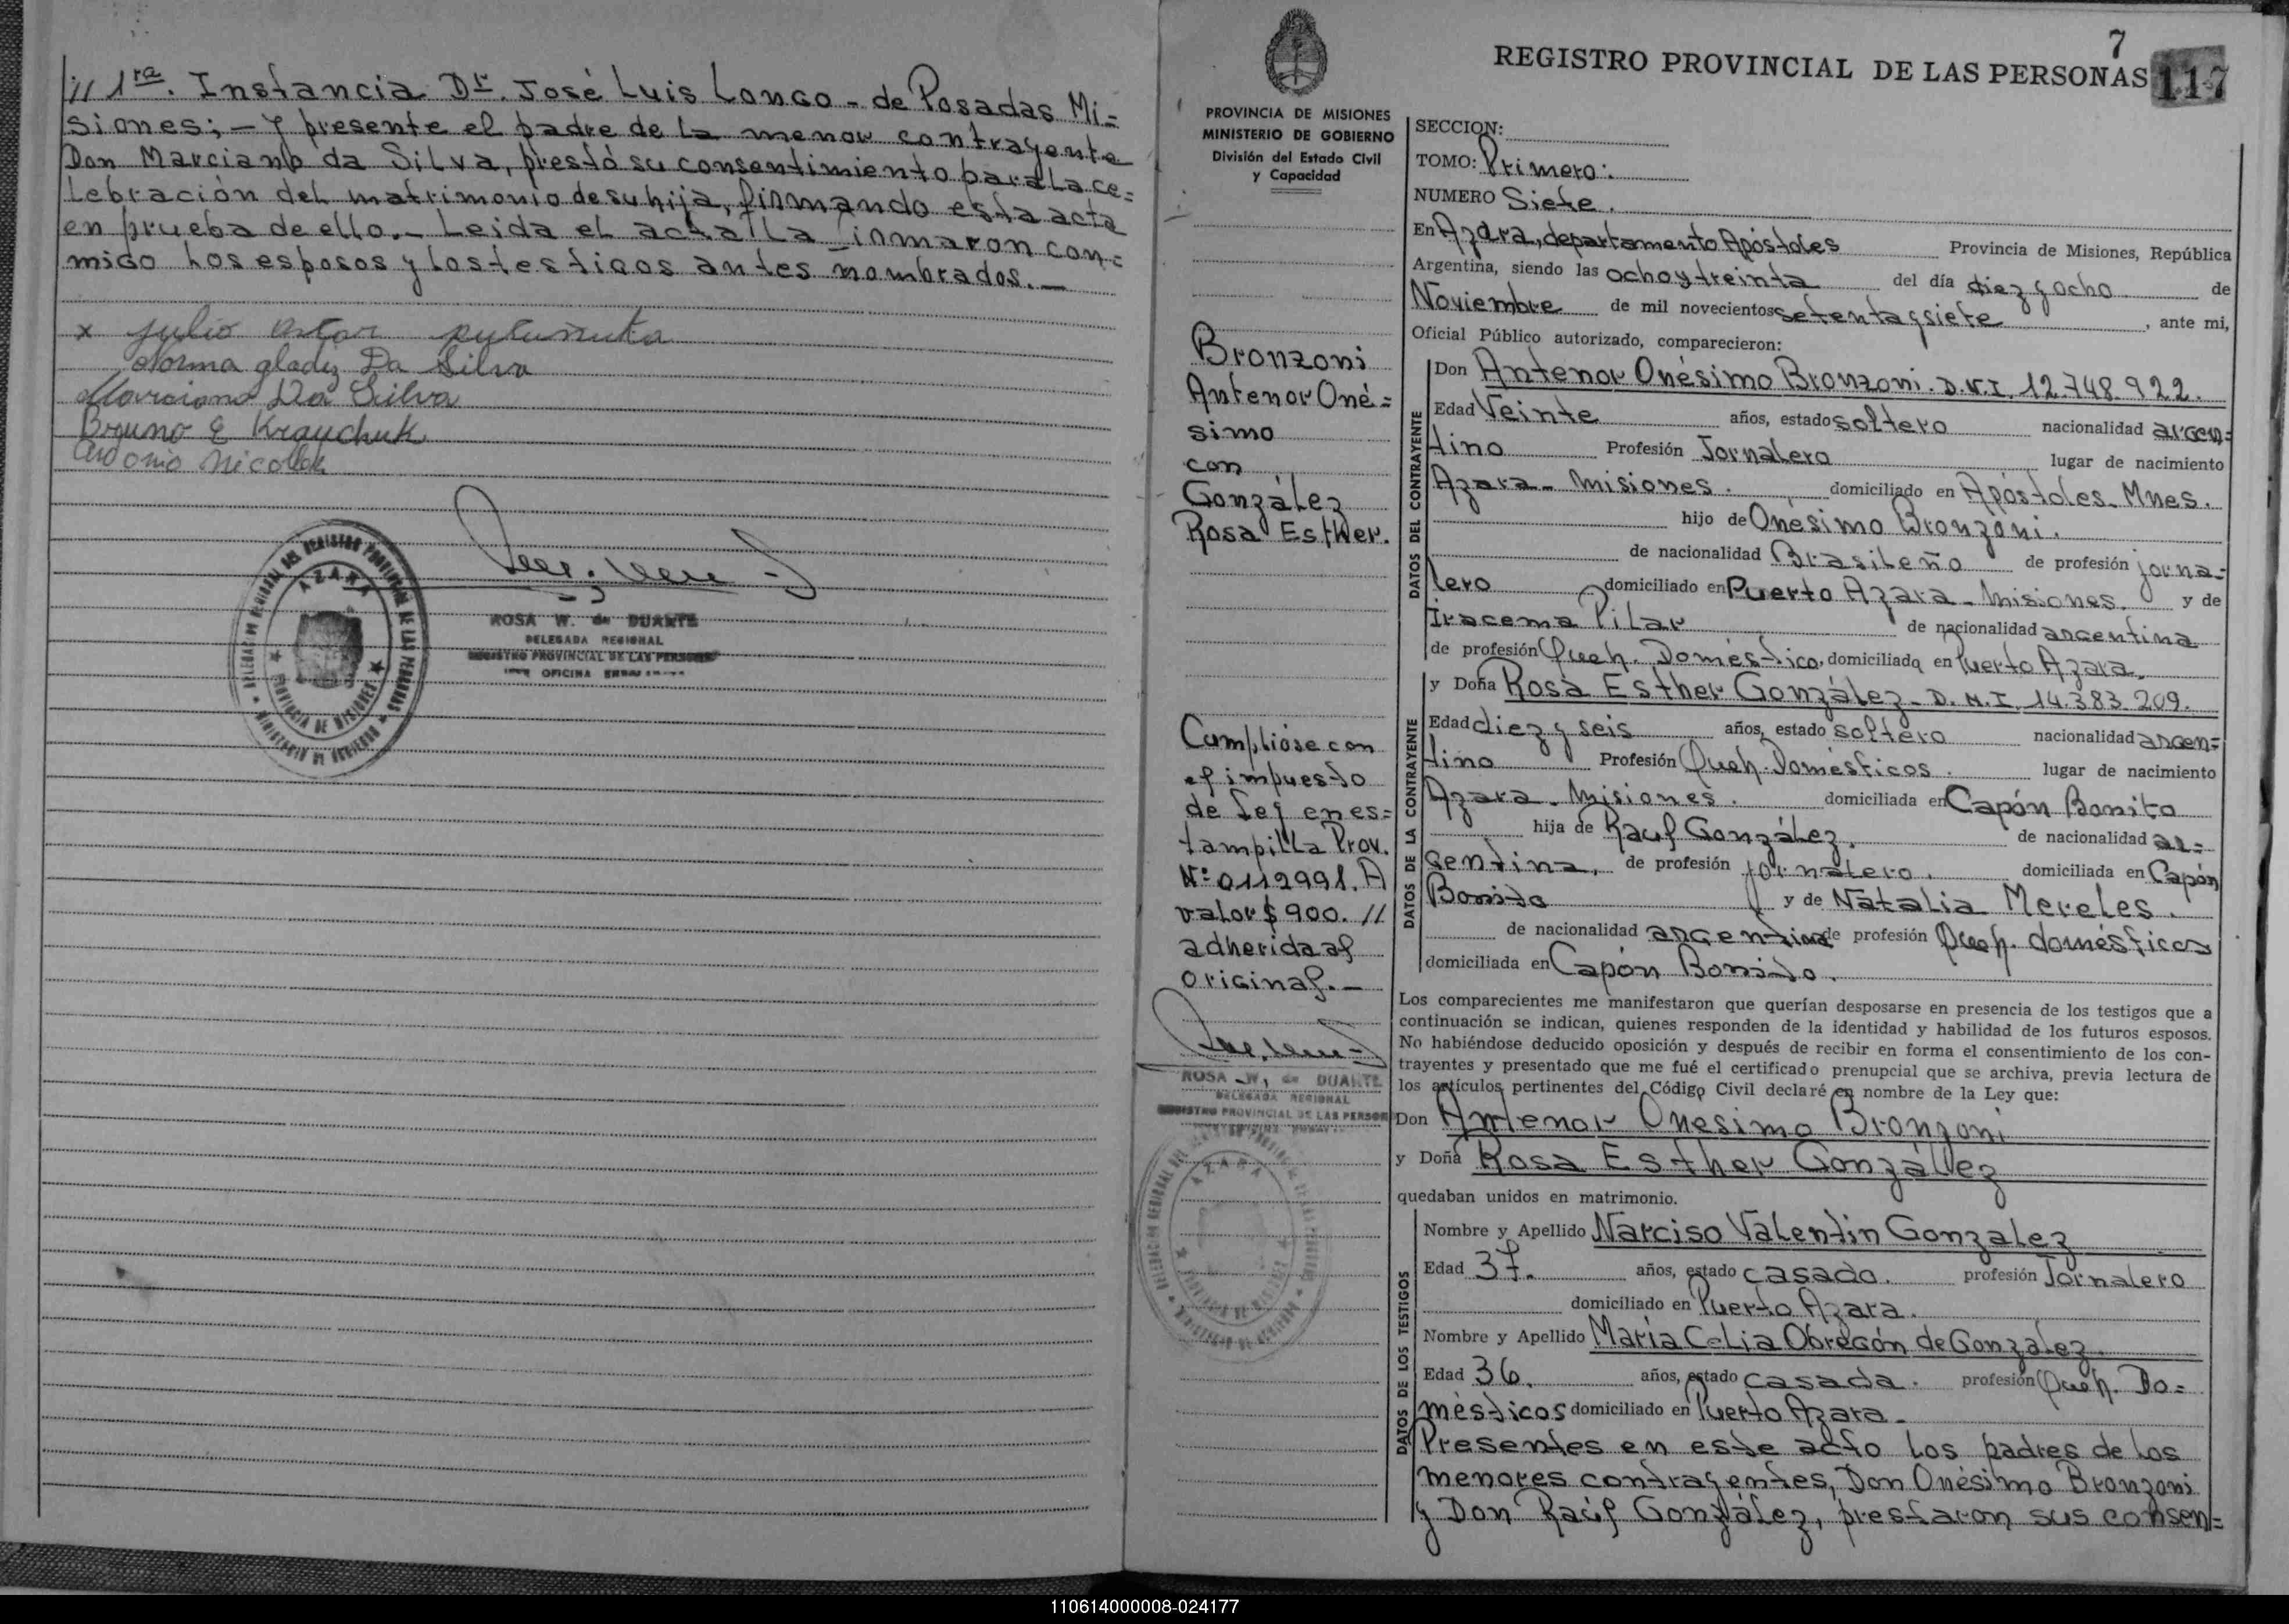 // 1ra. Instancia Dr. José Luis Longo - de Posadas Mi=
siones; - Y presente el padre de la menor contrayente
Don Marciano da Silva, prestó su consentimiento para la ce=
lebración del matrimonio de su hija, firmando esta acta
en prueba de ello.- Leida el acta la firmaron con=
migo los esposos y los testigos antes nombrados. -
x Julio Oscar
Norma gladys Da Silva
Marciano Da Silva
Bruno E Krauchuk
Antonio Nicolak
DELEGACION REGIONAL DEL REGISTRO PROVINCIAL DE LAS PERSONAS
AZARA
PROVINCIA DE MISIONES
MINISTERIO DE GOBIERNO
ROSA W. de DUARTE
DELEGADA REGIONAL
REGISTRO PROVINCIAL DE LAS PERSONAS
7
REGISTRO PROVINCIAL DE LAS PERSONAS 117
PROVINCIA DE MISIONES
MINISTERIO DE GOBIERNO
División del Estado Civil
y Capacidad
Bronzoni
Antenor Oné=
simo
con
González
Rosa Esther.
Cumplióse con
el impuesto
de Ley en es=
tampilla Prov.
Nº 0112991. A
valor $ 900. //
adherida al
original. -
ROSA W. de DUARTE
DELEGADA REGIONAL
REGISTRO PROVINCIAL DE LAS PERSON
AZARA
SECCION:
TOMO: Primero:
NUMERO Siete.
En Azara, departamento Apóstoles Provincia de Misiones, República
Argentina, siendo las ocho y treinta del día diez y ocho de
Noviembre de mil novecientos setenta y siete, ante mi,
Oficial Público autorizado, comparecieron:
DATOS DEL CONTRAYENTE
Don Antenor Onésimo Bronzoni. D.N.I. 12.748.922.
Edad Veinte años, estado soltero nacionalidad argen=
tino Profesión Jornalero lugar de nacimiento
Azara - Misiones. domiciliado en Apóstoles. Mnes.
hijo de Onésimo Bronzoni.
de nacionalidad Brasileño de profesión jorna=
lero domiciliado en Puerto Azara - Misiones. y de
Iracema Pilar de nacionalidad argentina
de profesión Queh. Doméstico, domiciliada en Puerto Azara.
DATOS DE LA CONTRAYENTE
y Doña Rosa Esther González - D.N.I. 14.383.209.
Edad diez y seis años, estado soltero nacionalidad argen=
tino Profesión Queh. Domésticos. lugar de nacimiento
Azara - Misiones. domiciliada en Capón Bonito
hija de Raúl González. de nacionalidad ar=
gentina, de profesión jornalero. domiciliado en Capón
Bonito y de Natalia Mereles.
de nacionalidad argentina de profesión Queh. domésticos
domiciliada en Capón Bonito.
Los comparecientes me manifestaron que querían desposarse en presencia de los testigos que a
continuación se indican, quienes responden de la identidad y habilidad de los futuros esposos.
No habiéndose deducido oposición y después de recibir en forma el consentimiento de los con-
trayentes y presentado que me fué el certificado prenupcial que se archiva, previa lectura de
los artículos pertinentes del Código Civil declaré en nombre de la Ley que:
Don Antenor Onesimo Bronzoni
y Doña Rosa Esther González
quedaban unidos en matrimonio.
DATOS DE LOS TESTIGOS
Nombre y Apellido Narciso Valentin Gonzalez
Edad 37. años, estado casado. profesión Jornalero
domiciliado en Puerto Azara.
Nombre y Apellido María Celia Obregón de Gonzalez.
Edad 36. años, estado casada. profesión Queh. Do=
mésticos domiciliado en Puerto Azara -
Presentes en este acto los padres de los
menores contrayentes, Don Onésimo Bronzoni
y Don Raúl González, prestaron sus consen=
110614000008-024177